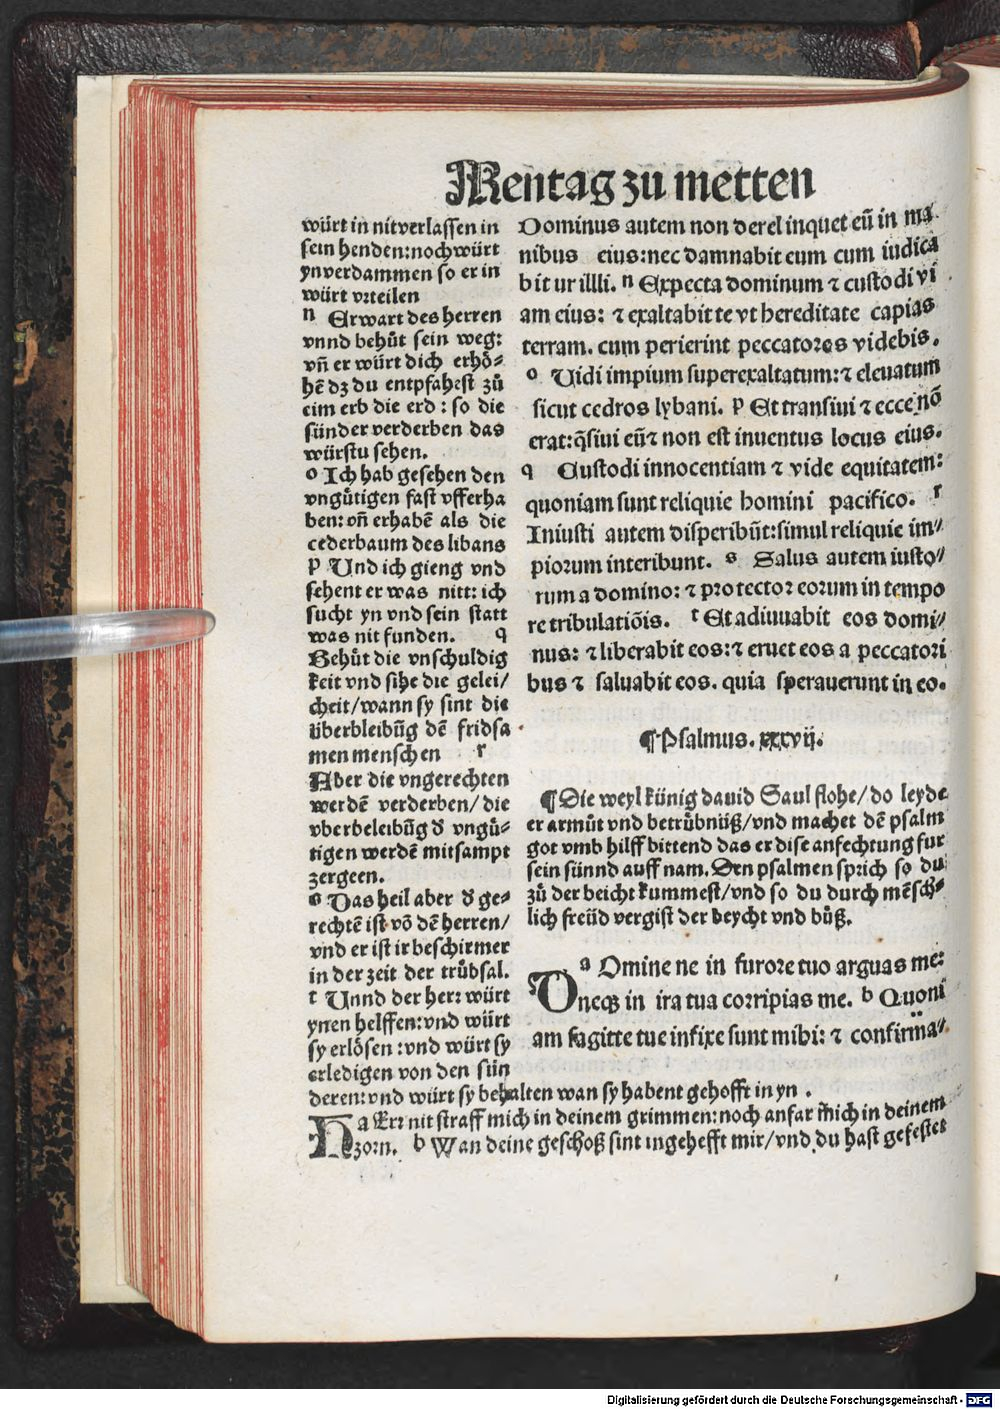 Mentag zu metten
würt in nit verlassen in
sein henden: noch würt
yn verdammen so er in
würt vrteilen
n Erwart des herren
vnnd behüt sein weg:
vñ er würt dich erhö-
hẽ dz du entpfahest zů
eim erb die erd: so die
sünder verderben das
würstu sehen.
o Ich hab gesehen den
vngůtigen fast vfferha
ben: vñ erhabẽ als die
cederbaum des libans
p Und ich gieng vnd
sehent er was nitt: ich
sucht yn vnd sein statt
was nit funden. q
Behüt die vnschuldig
keit vnd sihe die gelei/
cheit/wann sy sint die
überbleibũg dẽ fridsa
men menschen r
Aber die vngerechten
werdẽ verderben/die
vberbeleibũg d vngů-
tigen werdẽ mitsampt
zergeen.
s Das heil aber d ge-
rechtẽ ist võ dẽ herren/
vnd er ist ir beschirmer
in der zeit der trůbsal.
t Unnd der herr würt
ynen helffen: vnd würt
sy erlösen: vnd würt sy
erledigen von den sün
deren: vnd würt sy behalten wan sy habent gehofft in yn.
Dominus autem non derelinquet eũ in ma
nibus eius: nec damnabit eum cum iudica
bitur illli. n Expecta dominum ⁊ custodi vi
am eius: ⁊ exaltabit te vt hereditate capias
terram. cum perierint peccatores videbis.
o Uidi impium superexaltatum: ⁊ eleuatum
sicut cedros lybani. p Et transiui ⁊ ecce nõ
erat: q̃siui eũ ⁊ non est inuentus locus eius.
q Custodi innocentiam ⁊ vide equitatem:
quoniam sunt reliquie homini pacifico. r
Iniusti autem disperibũt: simul reliquie im//
piorum interibunt. s Salus autem iusto//
rum a domino: ⁊ protector eorum in tempo
re tribulatiõis. t Et adiuuabit eos domi//
nus: ⁊ liberabit eos: ⁊ eruet eos a peccatori
bus ⁊ saluabit eos. quia sperauerunt in eo.
¶ Psalmus. xxxvij.
¶ Die weyl künig dauid Saul flohe/do leyde
er armůt vnd betrůbnüß/vnd machet dẽ psalm
got vmb hilff bittend das er dise anfechtung fur
sein sünnd auff nam. Den psalmen sprich so du
zů der beicht kummest/vnd so du durch mẽsch-
lich freüd vergist der beycht vnd bůß.
a Omine ne in furore tuo arguas me:
D neqʒ in ira tua corripias me. b Quoni
am sagitte tue infixe sunt mihi: ⁊ confirma//
H a Err nit straff mich in deinem grimmen: noch anfar mich in deinem
zorn. b Wan deine geschoß sint ingehefft mir/vnd du hast gefestet
Digitalisierung gefördert durch die Deutsche Forschungsgemeinschaft - DFG